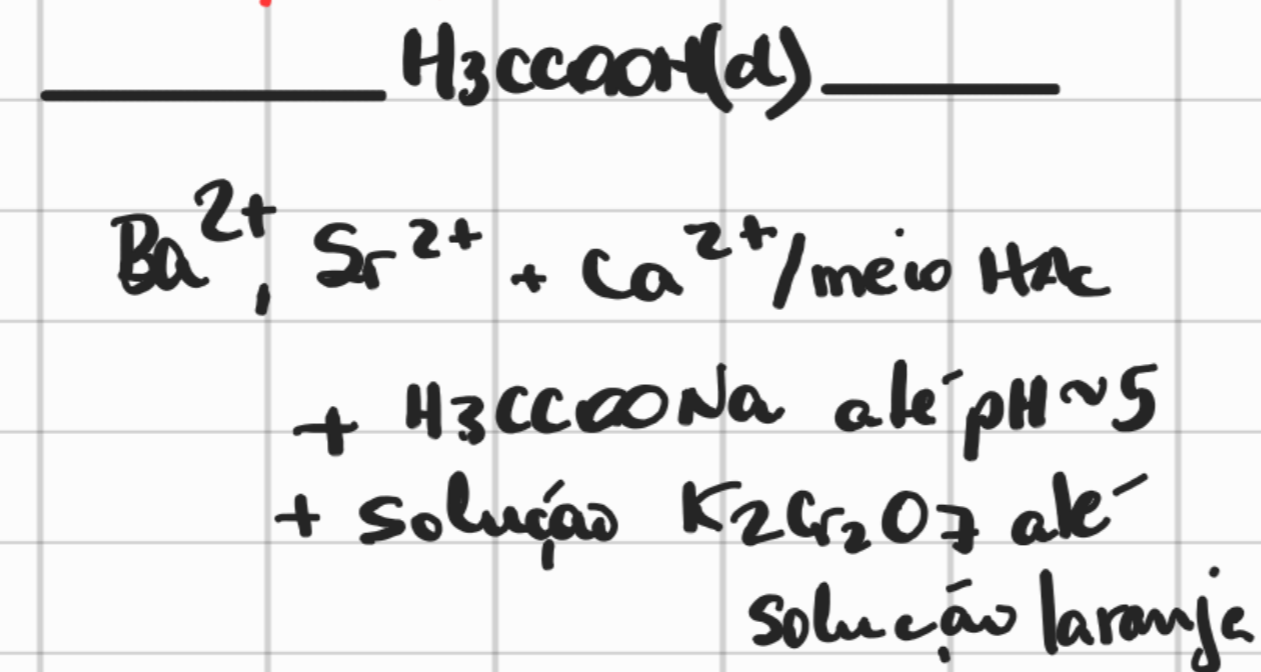 H3CCOOH(d)
Ba²⁺, Sr²⁺ + Ca²⁺/meio HAc
+ H3CCOONa até pH~5
+ solução K2Cr2O7 até
solução laranja